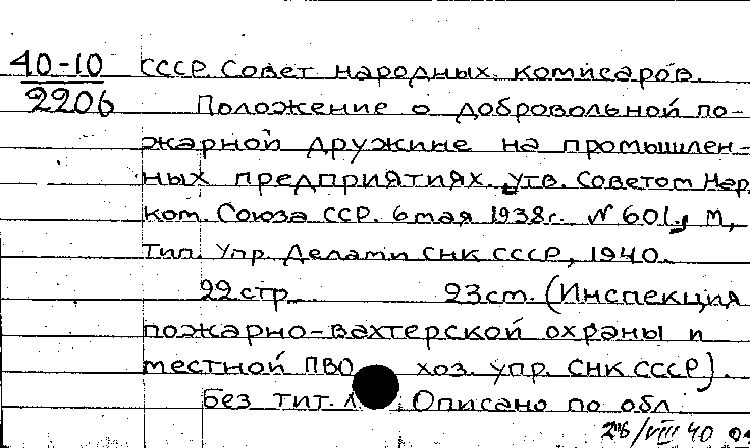 40-10 СССР. Совет народных комисаров.
2206 Положение о добровольной по-
жарной дружине на промышлен-
ных предприятиях. Утв. Советом Нар.
ком. Союза ССР. 6 мая 1938г. N 601., М,
Тип. Упр. Делами СНК СССР, 1940.
22 стр. 23 см. (Инспекция
пожарно-вахтерской охраны и
местной ПВО хоз. упр. СНК СССР).
Без тит. л. Описано по обл.
/VIII 40